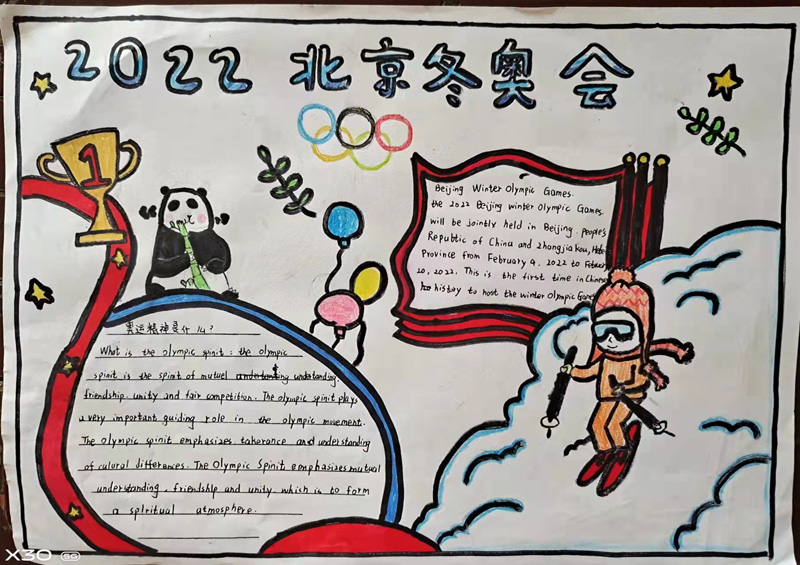 2022 北京冬奥会
1
Beijing Winter Olympic Games.
the 2022 Beijing winter Olympic Games
will be jointly held in Beijing. people's
Republic of China and zhangjiakou, Hebei
Province from February 4, 2022 to February
20, 2022. This is the first time in Chinese
histay to host the winter Olympic Games
奥运精神是什么?
What is the olympic spinit: the olympic
spinit is the spinit of mutual understanding.
friendship. unity and fair competition. The olympic spinit plays
a very important guiding role in the olympic movement.
The olympic spinit emphasizes takerance and understanding
of culural differences. The Olympic Spinit emphasizes mutual
understanding. friendship and unity. which is to form
a spiritual atmosphere.
X30 5G